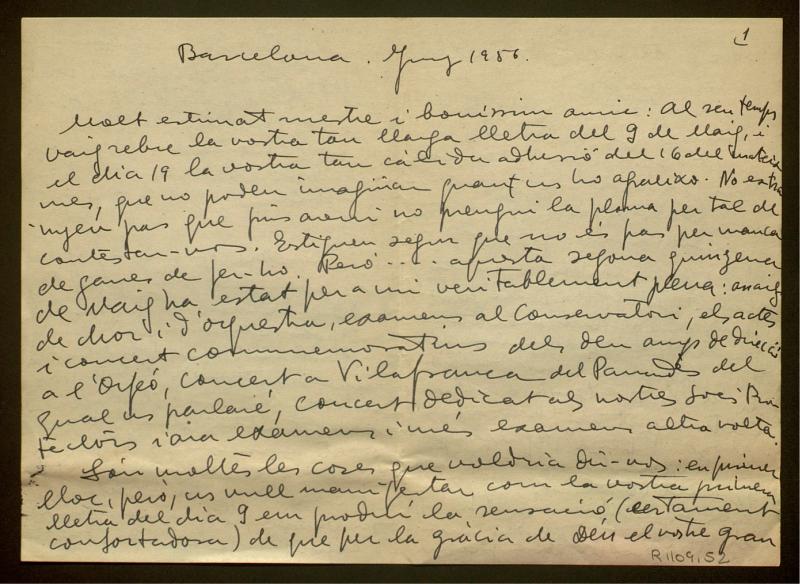 1
Barcelona. Juny 1956.
Molt estimat mestre i boníssim amic: Al seu temps
vaig rebre la vostra tan llarga lletra del 9 de Maig, i
el dia 19 la vostra tan càlida adhesió del 16 del mateix
mes, que no podeu imaginar quant us ho agraeixo. No estra
nyeu pas que fins avui no prengui la ploma per tal de
contestar-vos. Estigueu segur que no és pas per manca
de ganes de fer-ho. Però.... aquesta segona quinzena
de Maig ha estat per a mi veritablement plena: assaig
de chor i d'orquestra, exàmens al Conservatori, els actes
i concert commemoratius dels deu anys de direcció
a l'Orfeó, concert a Vilafranca del Panadès del
qual us parlaré, concert dedicat als nostres Socis Pro
tectors i ara exàmens i més exàmens altra volta.
Són moltes les coses que voldria dir-vos: en primer
lloc, però, us vull manifestar com la vostra primera
lletra del dia 9 em produí la sensació (certament
confortadora) de que per la gràcia de Déu el vostre gran
R.1109,52